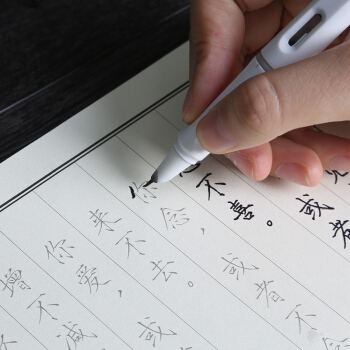 或者
不喜。
你念，或者不
来不去。
你爱，或
增不减